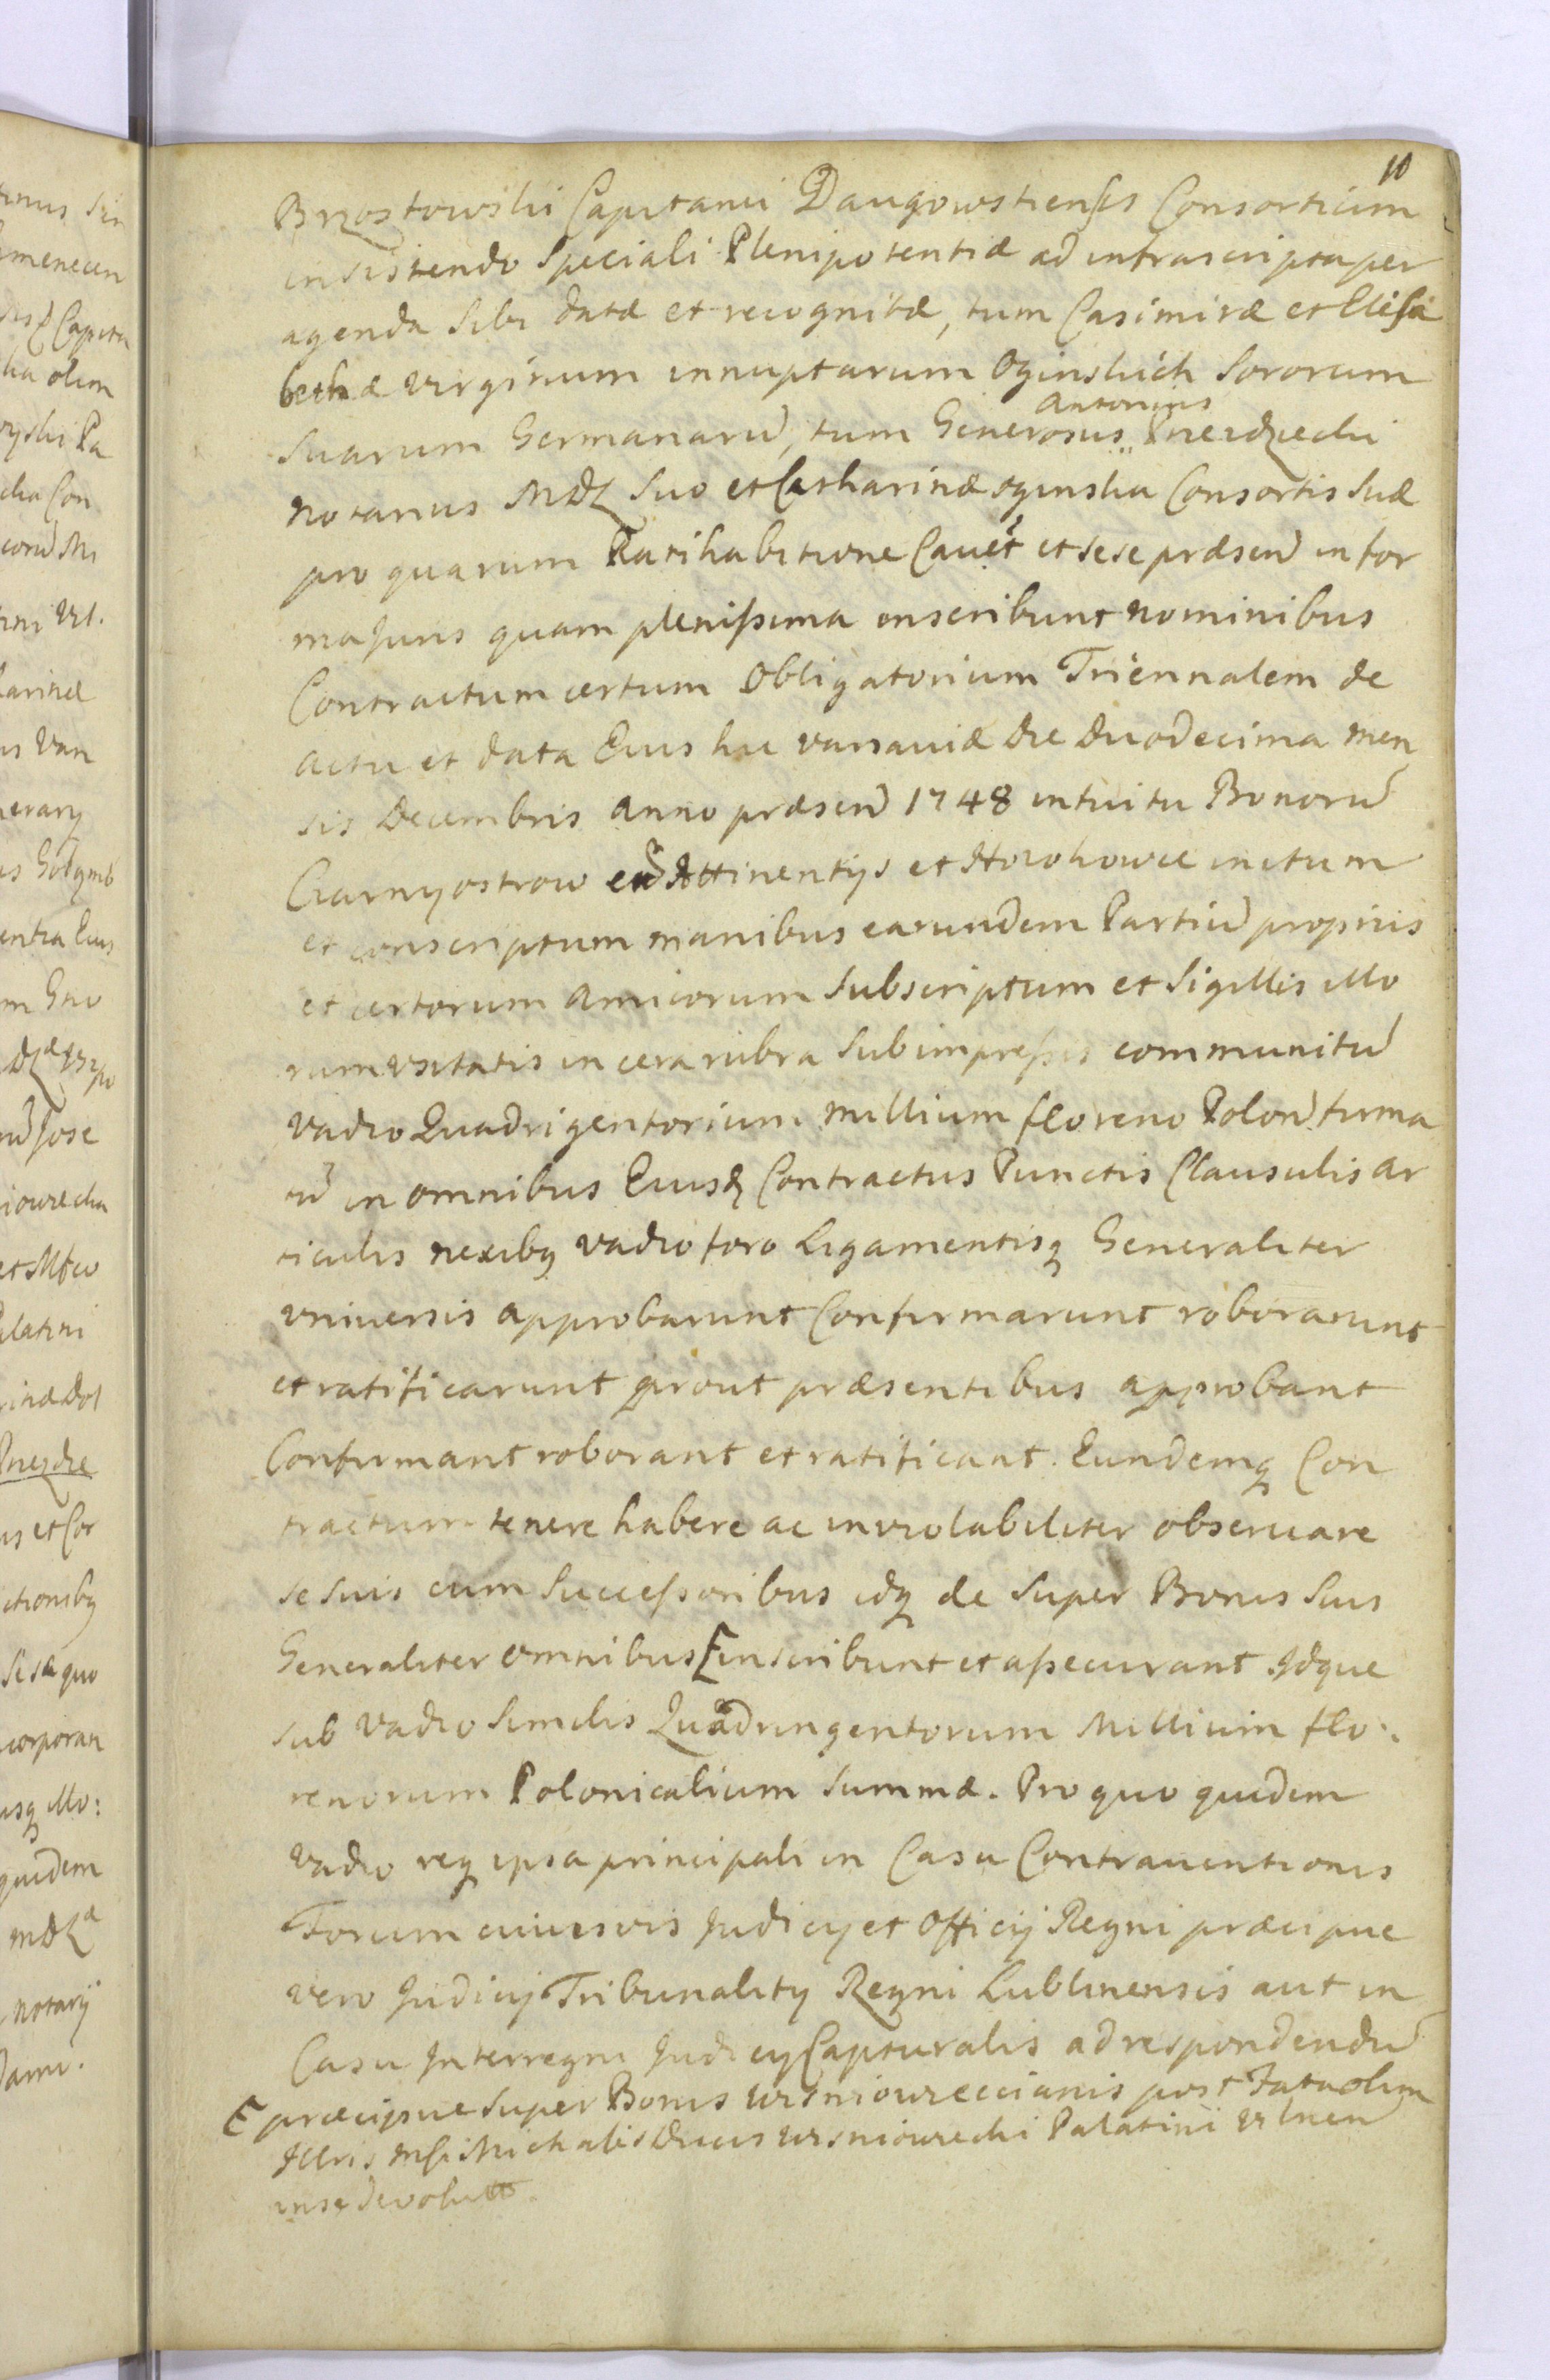 10
Brzostowski Capitanei Daugowstiensis Consortium
insistendo Speciali Plenipotentiæ ad infrascripta per
agenda sibi datæ et recognitæ, tum Casimiræ et Elisa
bethæ virginum innuptarum Oginskich Sororum
Suarum Germanarũ, tum Generosus Antonius Przezdziecki
Notarius MDL Suo et Catharinæ Oginska Consortis Suæ
pro quarum Ratihabitione Cauet et sese præsen in for
ma Juris quam plenissima inscribunt nominibus
Contractum certum Obligatorium Triennalem de
actu et data Eius hic varsauiæ die Duodecima men
sis Decembris Anno præsen 1748 intuitu Bonorũ
Czarnyostrow cũ Attinentijs et Horohowce initum
et conscriptum manibus earundem Partiũ proprijs
et certorum amicorum Subscriptum et Sigillis illo
rum vsitatis in cera rubra Subimpressis communitũ
vadio Quadrigentorium millium floreno Polon firma
tũ in omnibus Eiusq Contractus Punctis Clausulis ar
ticulis nexibq vadio foro Ligamentisq Generaliter
vniuersis approbarunt Confirmarunt roborarunt
et ratificarunt prout præsentibus approbant
Confirmant roborant et ratificant. Eundemq Con
tractum tenere habere ac inviolabiliter obseruare
se suis cum Successoribus idq de super Bonis Suis
Generaliter omnibus E inscribunt et assecurant Idque
sub vadio Similis Quadringentorum Millium flo:
renorum Polonicalium Summæ. Pro quo quidem
vadio req ipsa principali in Casu Contrauentionis
Forum cuiusvis Judicij et Officij Regni præcipue
vero Judicij Tribunality Regni Lublinensis aut in
Casu Interregni Judicij Capturalis ad respondendũ
E præcipue super Bonis Wisniowieccianis post Fata olim
Illris Msi Michaelis Ducis Wisniowiecki Palatini Vilnen
in se devolutis.